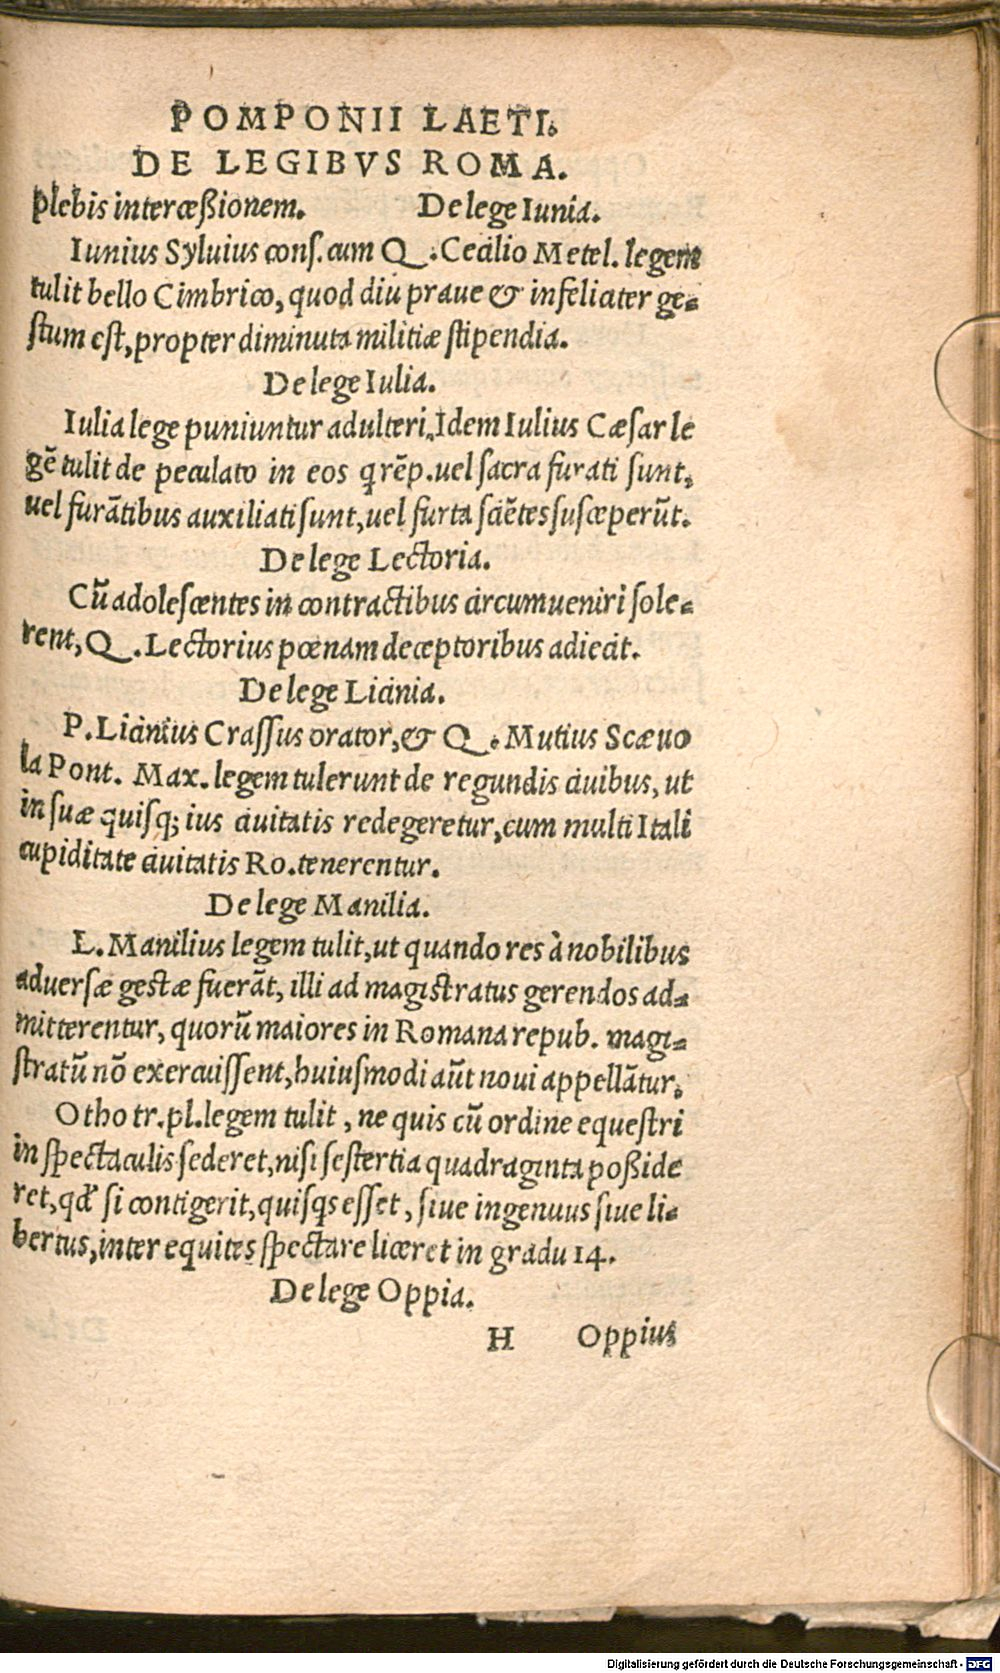 POMPONII LAETI.
DE LEGIBVS ROMA.
plebis interceßionem. De lege Iunia.
Iunius Syluius conſ. cum Q. Cecilio Metel. legem
tulit bello Cimbrico, quod diu praue & infeliciter ge-
ſtum eſt, propter diminuta militiæ ſtipendia.
De lege Iulia.
Iulia lege puniuntur adulteri, Idem Iulius Cæſar le
gē tulit de peculato in eos q rēp. uel ſacra furati ſunt,
uel furātibus auxiliati ſunt, uel furta ſciētes ſuſceperūt.
De lege Lectoria.
Cū adoleſcentes in contractibus circumueniri ſole-
rent, Q. Lectorius pœnam deceptoribus adiecit.
De lege Licinia.
P. Licinius Craſſus orator, & Q. Mutius Scæuo
la Pont. Max. legem tulerunt de regundis ciuibus, ut
in ſuæ quiſq; ius ciuitatis redegeretur, cum multi Itali
cupiditate ciuitatis Ro. tenerentur.
De lege Manilia.
L. Manilius legem tulit, ut quando res à nobilibus
aduerſæ geſtæ fuerāt, illi ad magiſtratus gerendos ad-
mitterentur, quorū maiores in Romana repub. magi-
ſtratū nō exercuiſſent, huiuſmodi aūt noui appellātur.
Otho tr. pl. legem tulit, ne quis cū ordine equeſtri
in ſpectaculis ſederet, niſi ſeſtertia quadraginta poßide
ret, qd' ſi contigerit, quiſqs eſſet, ſiue ingenuus ſiue li-
bertus, inter equites ſpectare liceret in gradu 14.
De lege Oppia.
H Oppius
Digitalisierung gefördert durch die Deutsche Forschungsgemeinschaft - DFG